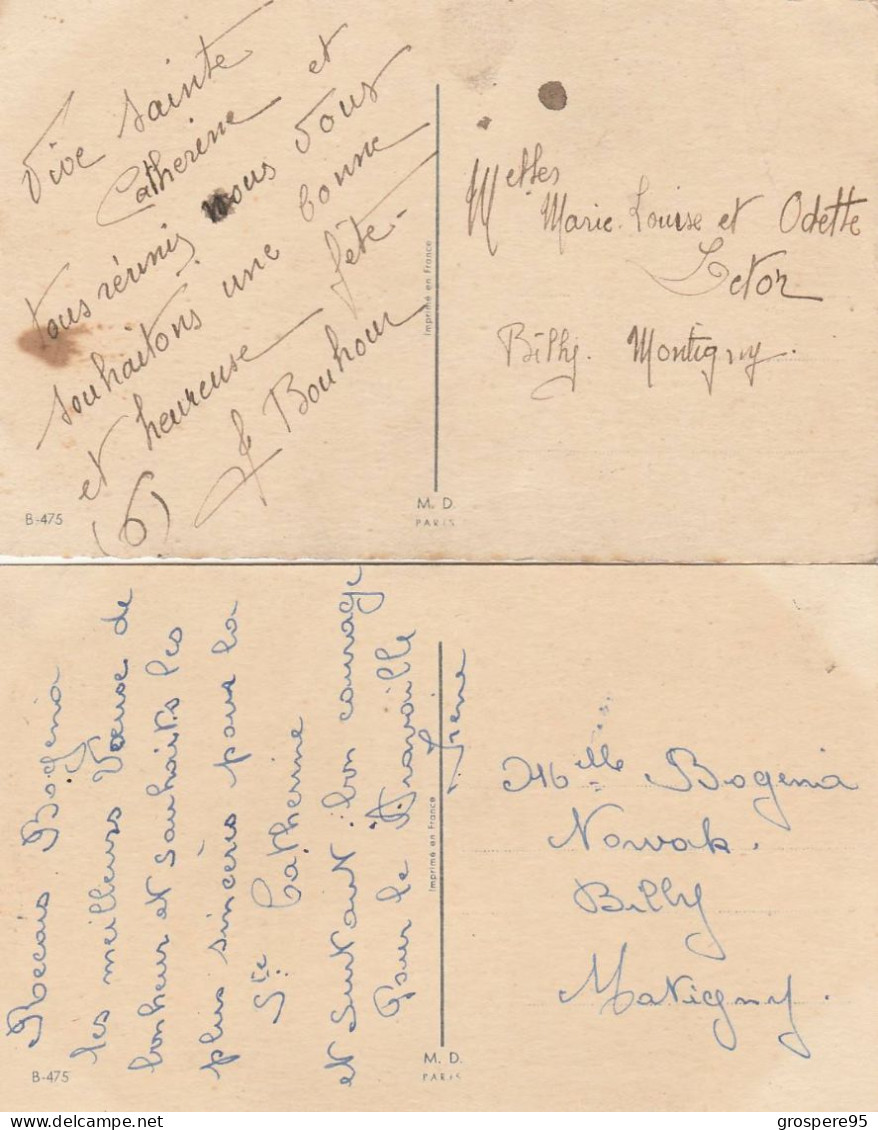 Vive Sainte
Catherine et
tous réunis nous vous
souhaitons une bonne
et heureuse fête -
(6) Bouhour
B-475
Imprimé en France
M. D.
PARIS
Melles
Marie-Louise et Odette
Letor
Billy. Montigny.
Recais Bogenia
les meilleurs Vœuse de
bonheur et Souhaits les
plus sincères pour la
Ste Catherine
et surtout bon courage
Pour le Travaille
Irène
B-475
Imprimé en France
M. D.
PARIS
Melle Bogenia
Nowak.
Billy
Matigny.
grospere95